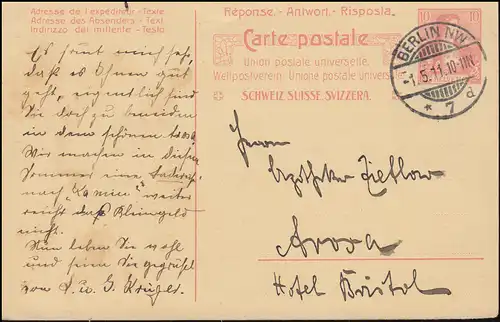 Adresse de l'expéditeur - Texte
Adresse des Absenders - Text
Indirizzo del mittente - Testo
Réponse. - Antwort. - Risposta.
Carte postale
Union postale universelle.
Weltpostverein. Unione postale universale
SCHWEIZ. SUISSE. SVIZZERA.
10
BERLIN NW
-1.5.11.10-11N
* 7 d
Es freut mich sehr,
daß es Ihnen gut
geht, eigentlich sind
Sie doch zu beneiden
in dem schönen
Wir machen in diesem
Sommer eine
nach weiter
reicht das Kleingeld
nicht.
Nun leben Sie wohl
und seien Sie gegrüßt
von u. G. Krüger.
Herrn
Apotheker Zietlow
Arosa
Hotel Bristol